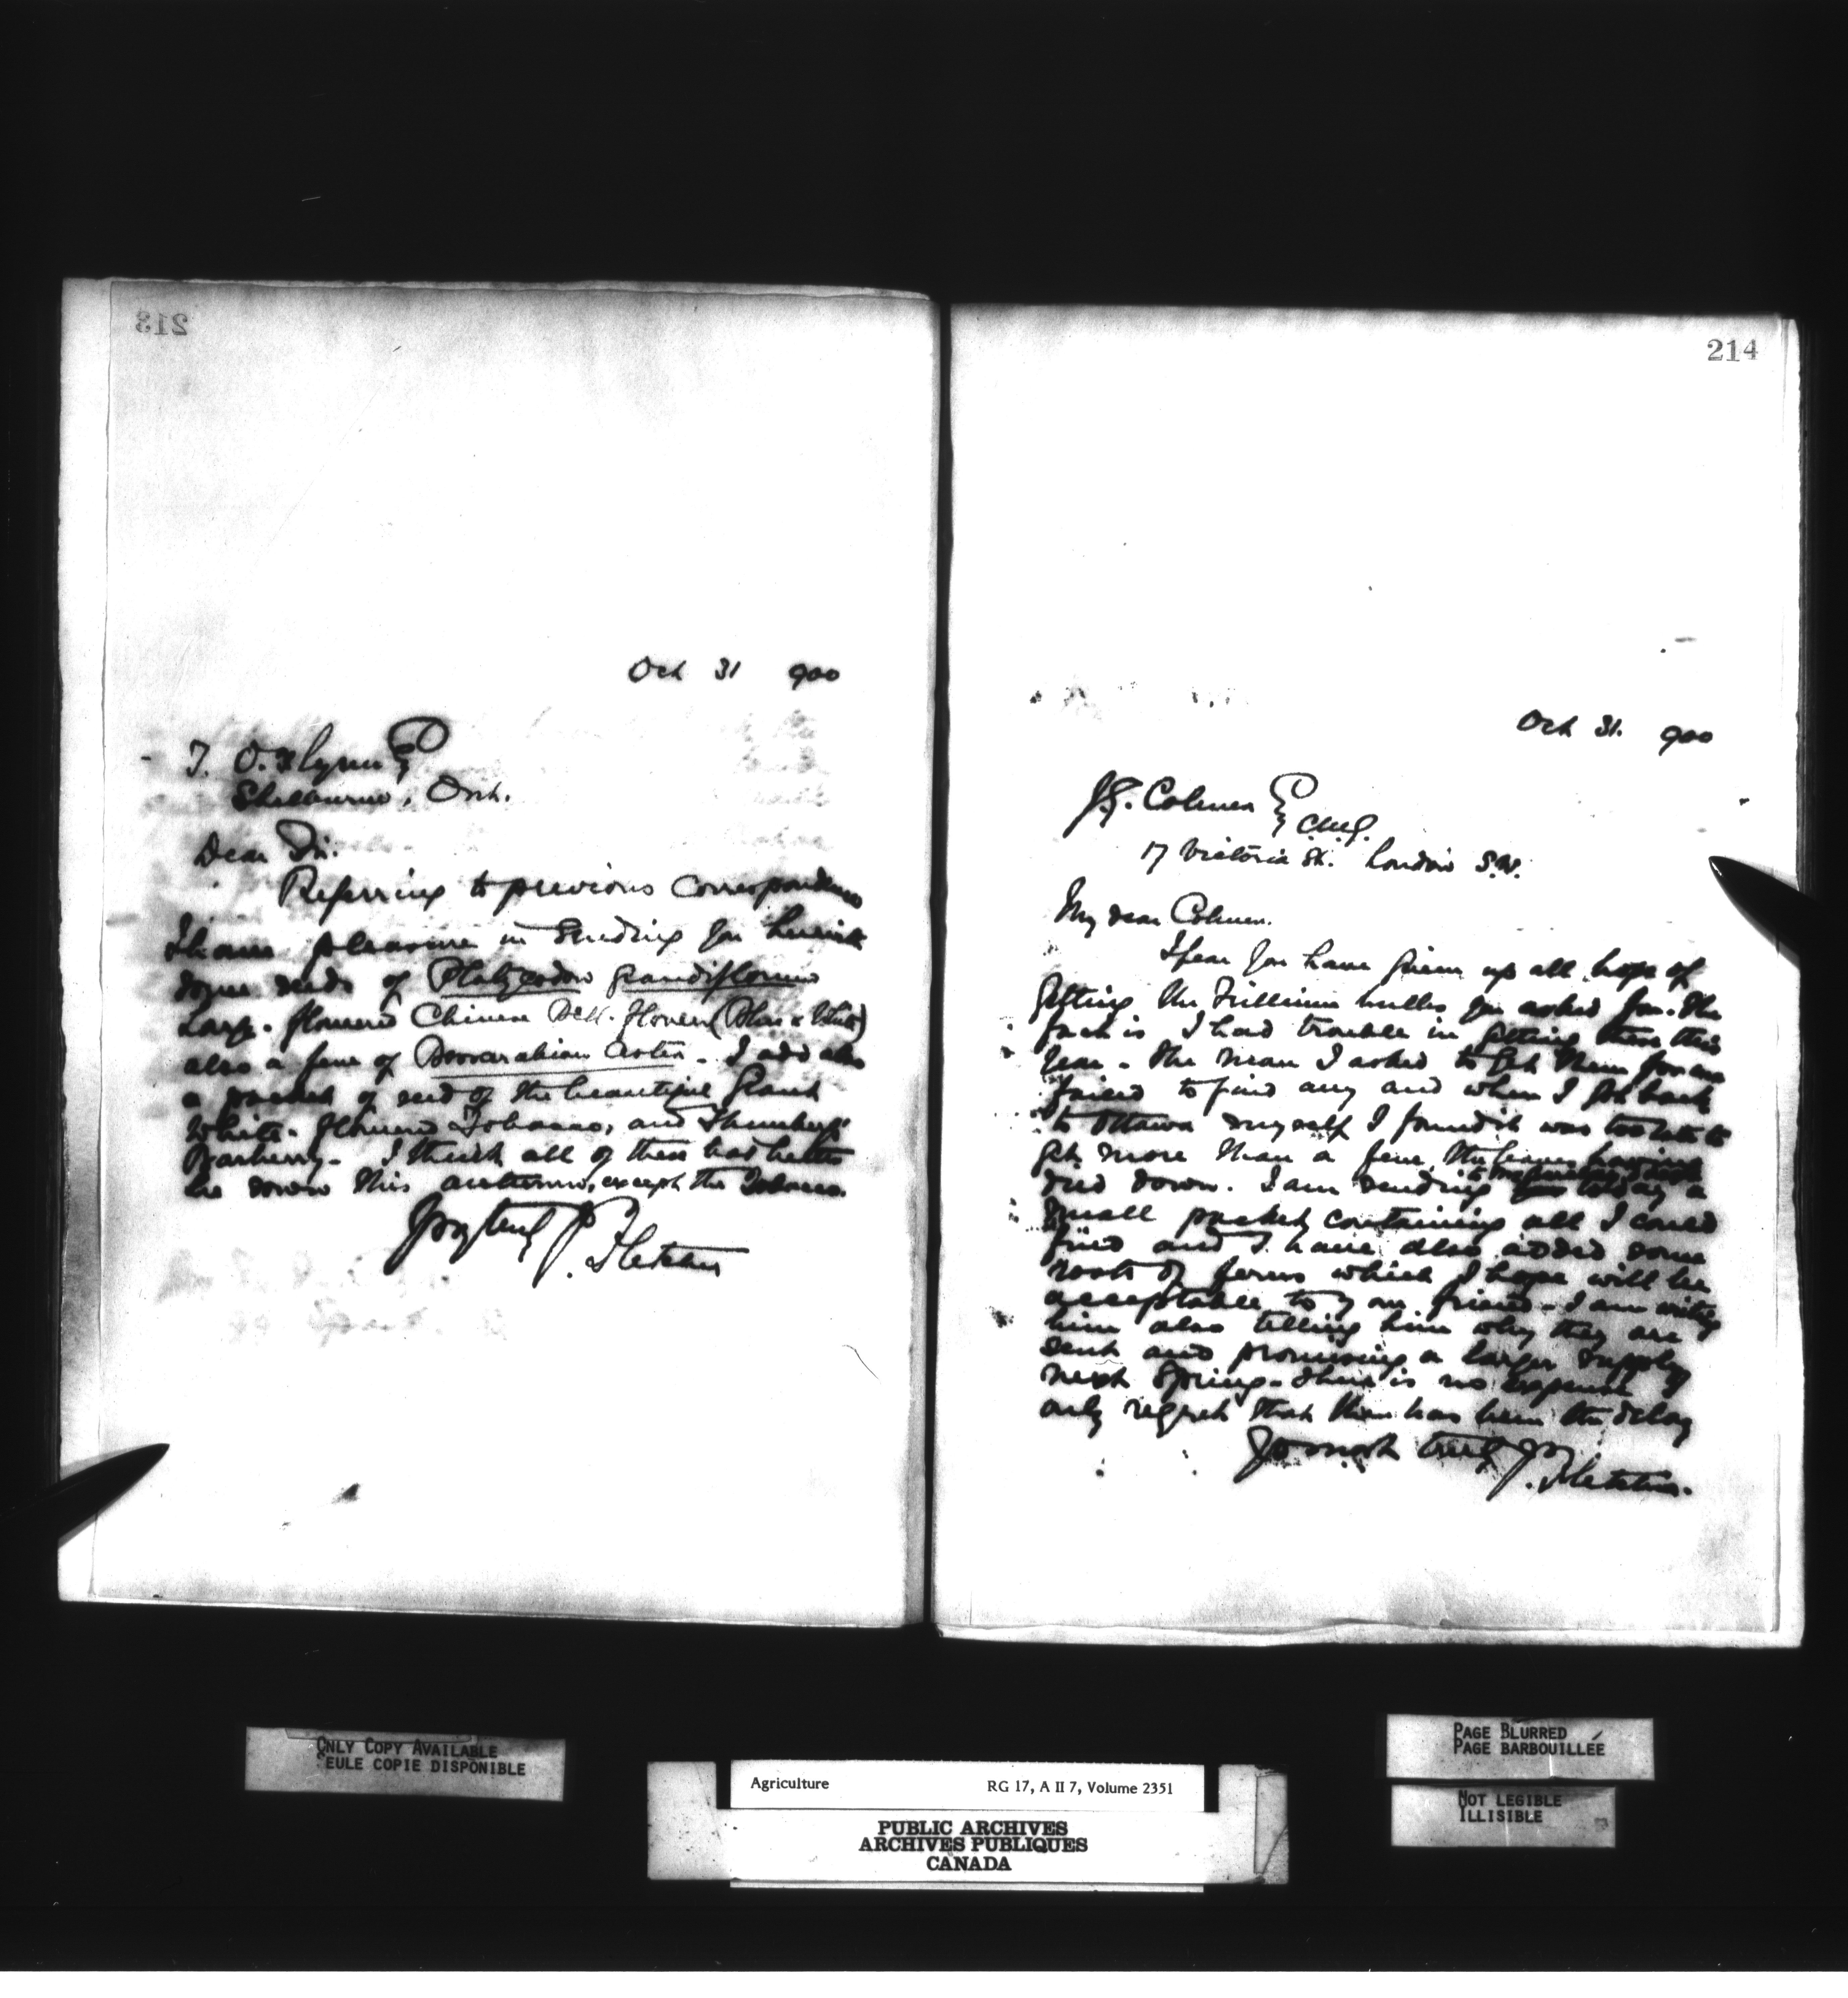 213
Oct 31 900
T. O. Flynn Esq
Shelburne, Ont.
Dear Sir.
Referring to previous correspondence
I have pleasure in sending you herewith
some seeds of Platycodon grandiflorum
Large-flowered Chinese Bell-flower (Blue & White)
also a few of Bessarabian Aster. I add also
a packet of seed of the beautiful Giant
White-flowered Tobacco, and Thunbergs
Barberry. I think all of these had better
be sown this autumn, except the Tobacco.
Yrs truly
J. Fletcher
214
Oct 31. 900
J.G. Colmer Esq
C.M.G.
17 Victoria St. London S.W.
My dear Colmer.
I fear you have given up all hope of
getting the Trillium bulbs you asked for. The
fact is I had trouble in getting them this
year. The man I asked to get them for me
failed to find any and when I got back
to Ottawa myself I found it was too late to
get more than a few, the leaves having
died down. I am sending today a
small packet containing all I could
find and I have also added some
roots of ferns which I hope will be
acceptable to your friend. I am writing
him also telling him why they are
sent and promising a larger supply
next Spring. There is no expense
only regret that there has been the delay
Yrs most truly
J. Fletcher.
ONLY COPY AVAILABLE
SEULE COPIE DISPONIBLE
Agriculture RG 17, A II 7, Volume 2351
PUBLIC ARCHIVES
ARCHIVES PUBLIQUES
CANADA
PAGE BLURRED
PAGE BARBOUILLÉE
NOT LEGIBLE
ILLISIBLE